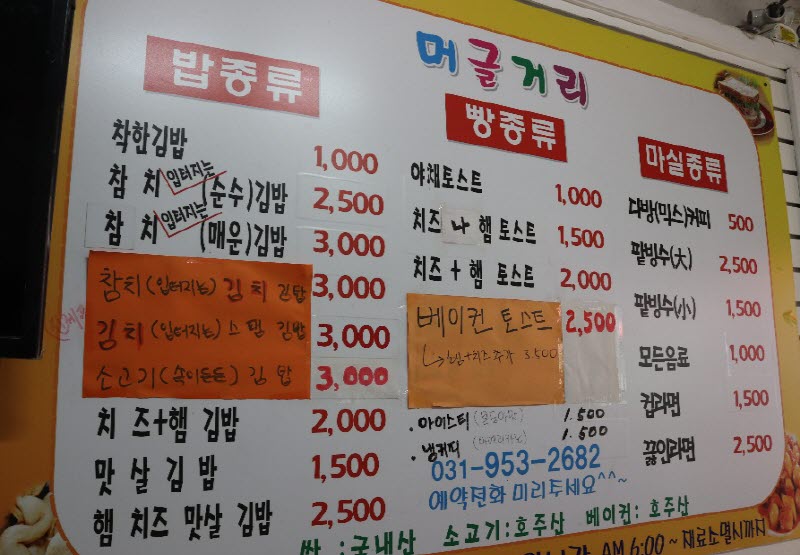 머글거리
밥종류
착한김밥 1,000
참치 입터지는 (순수)김밥 2,500
참치 입터지는 (매운)김밥 3,000
참치(입터지는) 김치 김밥 3,000
김치(입터지는) 스팸 김밥 3,000
소고기(속이든든) 김밥 3,000
치즈+햄 김밥 2,000
맛살김밥 1,500
햄 치즈 맛살 김밥 2,500
빵종류
야채토스트 1,000
치즈 나 햄 토스트 1,500
치즈 + 햄 토스트 2,000
베이컨 토스트 2,500
↳ 햄+치즈추가 3,500
. 아이스티 1.500
. 냉커피 1.500
031-953-2682
예약전화 미리두세요^^~
마실종류
다방(믹스)커피 500
팥빙수(大) 2,500
팥빙수(小) 1,500
모든음료 1,000
컵라면 1,500
끓인라면 2,500
쌀 :국내산 소고기:호주산 베이컨: 호주산
AM 6:00 ~ 재료소멸시까지